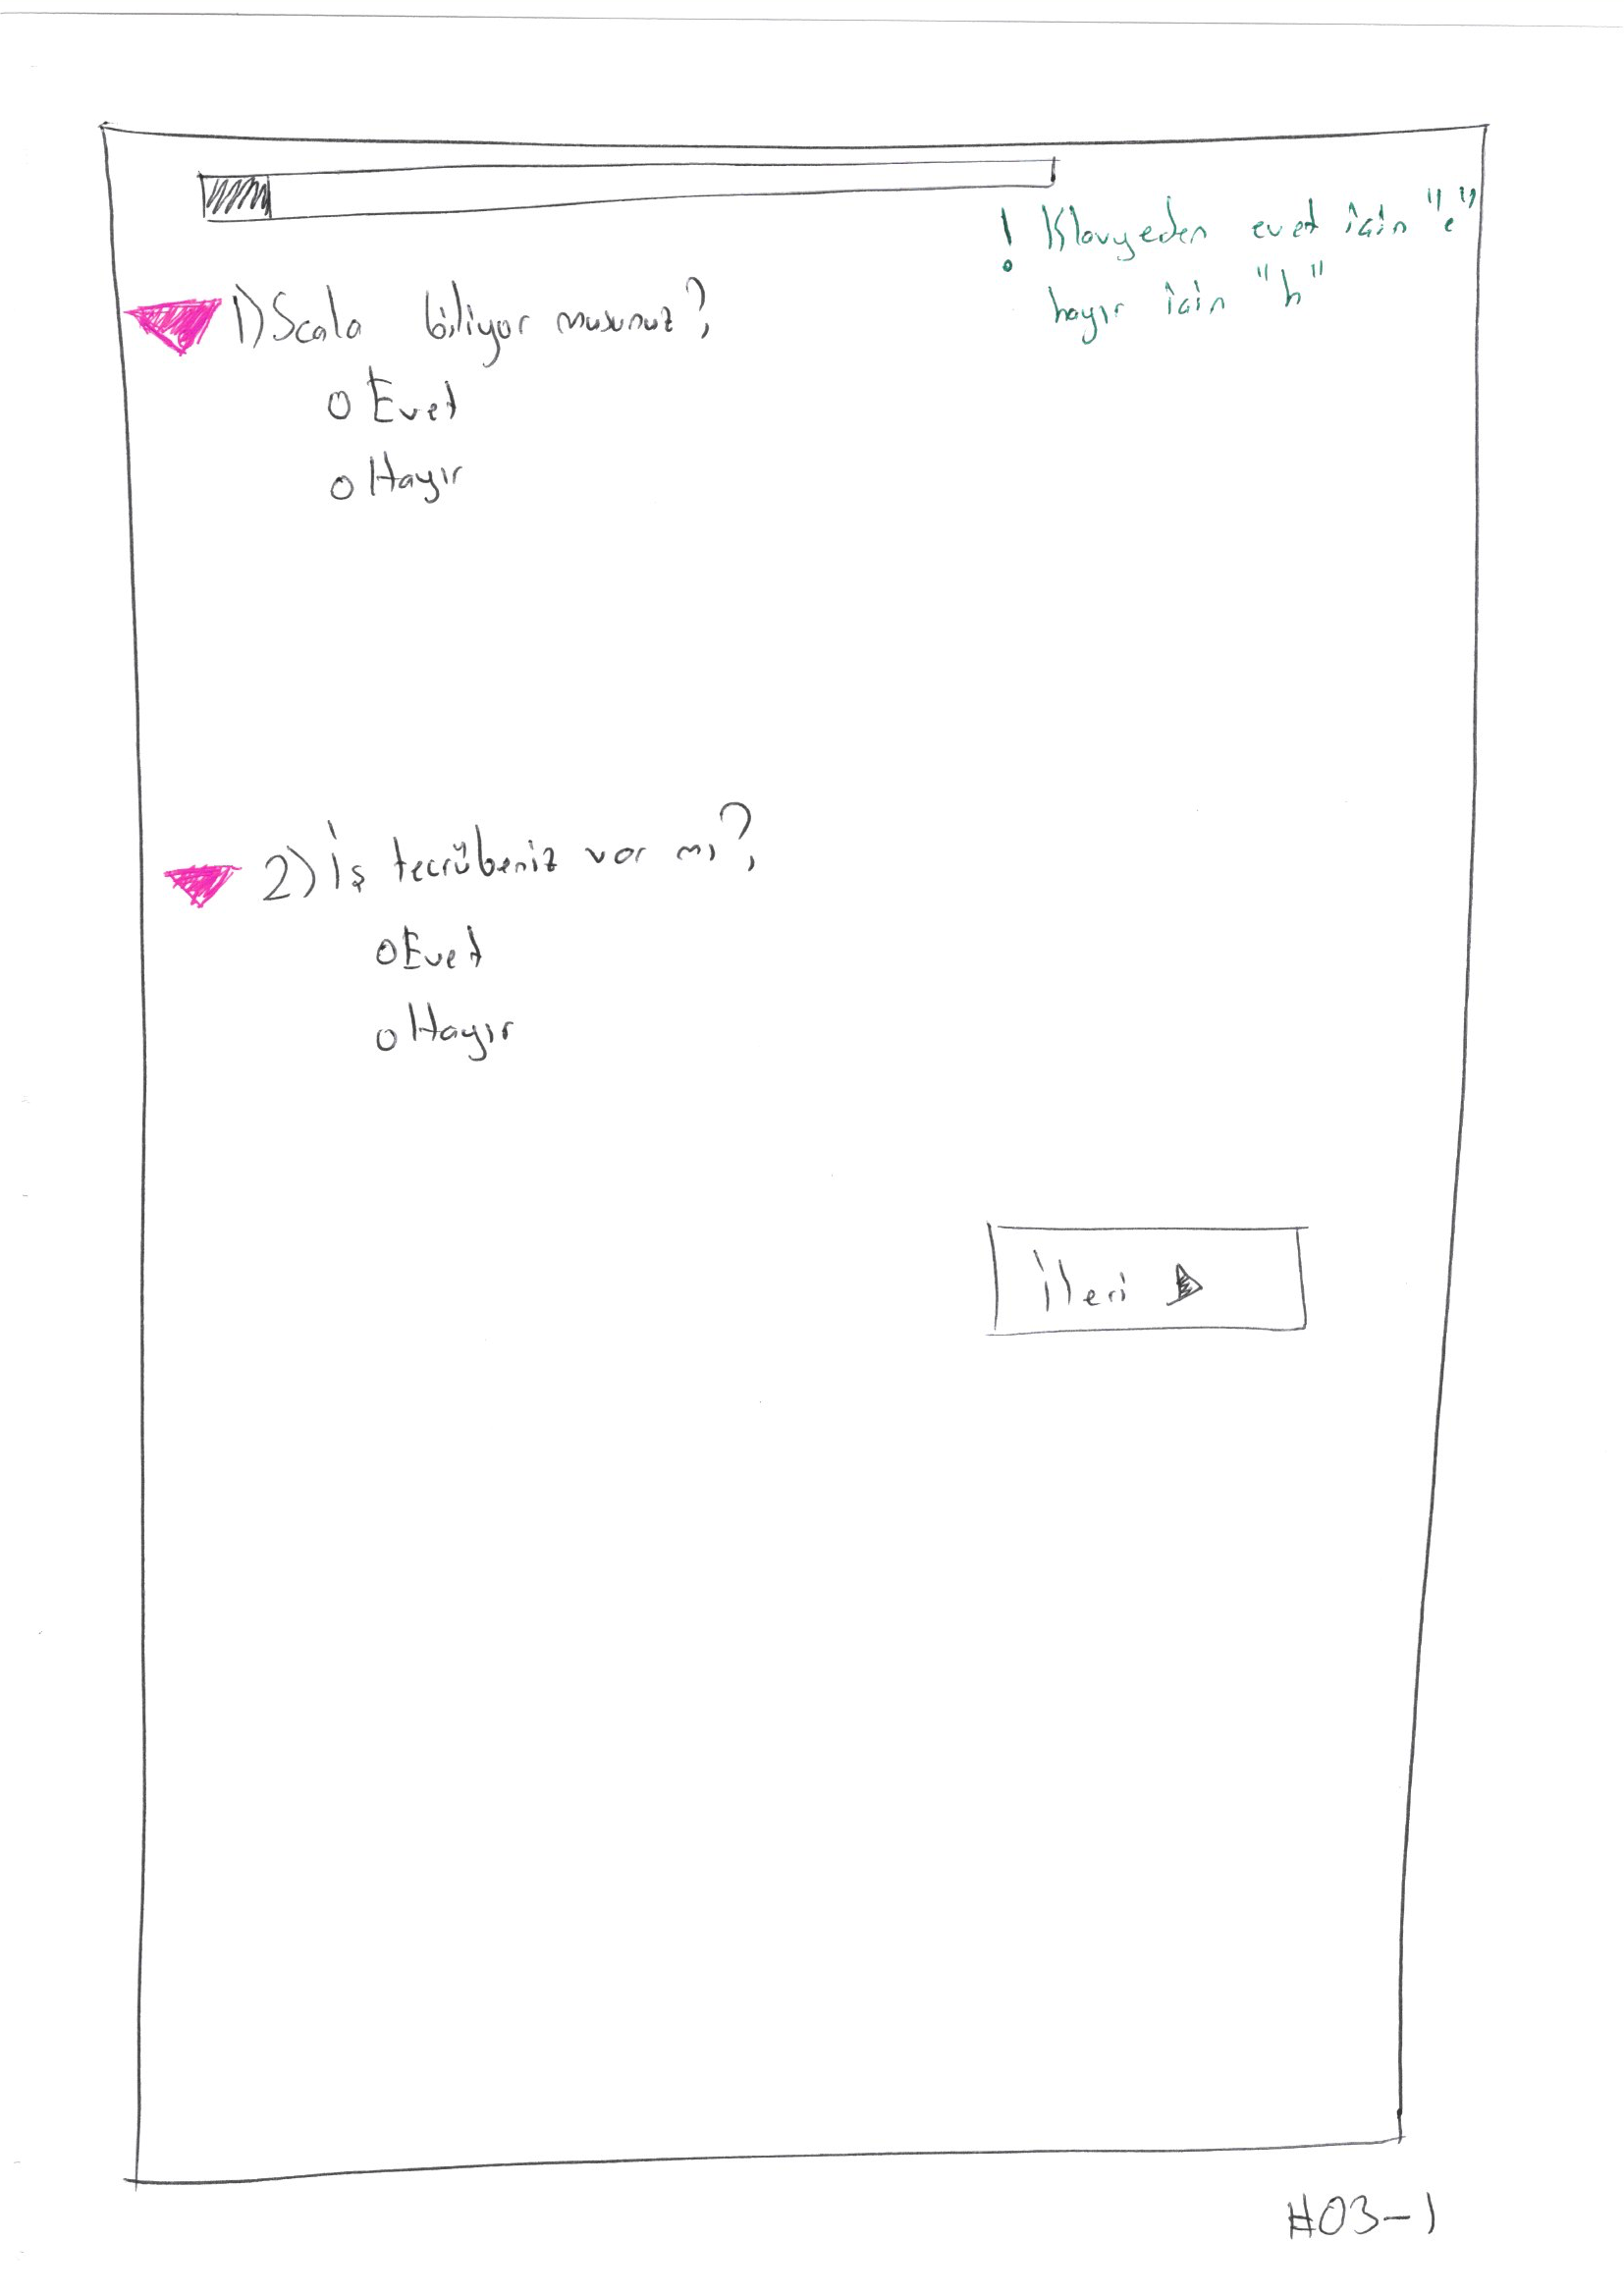 ! Klavyeden evet için "e"
hayır için "h"
1) Scala biliyor musunuz?
Evet
Hayır
2) İş tecrübeniz var mı?
Evet
Hayır
İleri
#03-1